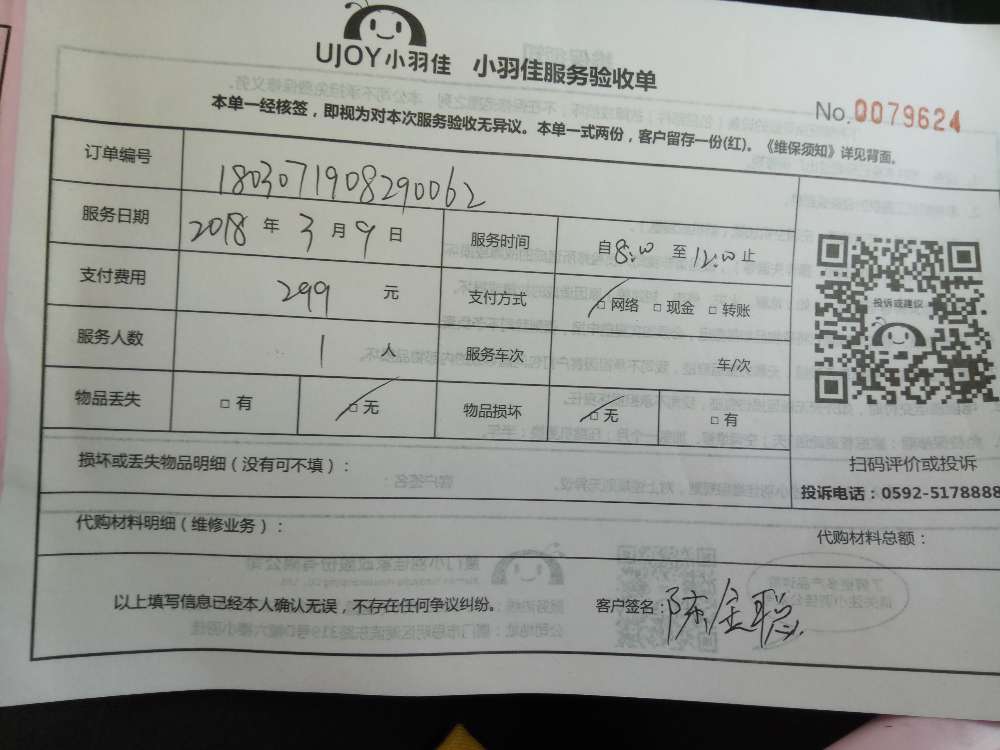 UJOY小羽佳 小羽佳服务验收单
No.0079624
本单一经核签，即视为对本次服务验收无异议。本单一式两份，客户留存一份(红)。《维保须知》详见背面。
订单编号 1803071908290062
服务日期 2018 年 3 月 9 日 服务时间 自8:00 至 12:00 止
支付费用 299 元 支付方式 □ 网络 □ 现金 □ 转账
服务人数 1 人 服务车次 车/次
物品丢失 □ 有 □ 无 物品损坏 □ 无 □ 有
投诉或建议
扫码评价或投诉
投诉电话：0592-5178888
损坏或丢失物品明细（没有可不填）：
代购材料明细（维修业务）：
代购材料总额：
以上填写信息已经本人确认无误，不存在任何争议纠纷。
客户签名：陈金聪